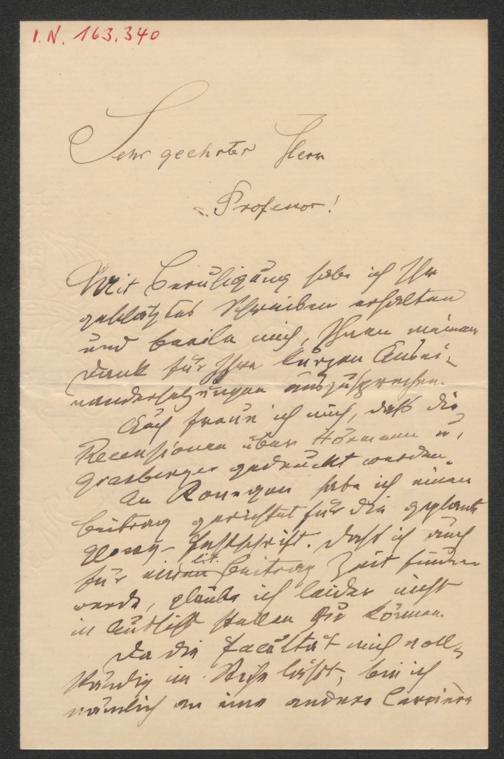 I.N. 163.340
Sehr geehrter Herr
Professor!
Mit Beruhigung habe ich Ihr
geschätztes Schreiben erhalten
und beeile mich, Ihnen meinen
Dank für Ihre kurzen Ausei-
nandersetzungen auszusprechen.
Auch freue ich mich, daß die
Recensionen über Hörmann u.
Grasberger gedruckt werden.
An Ronsperger habe ich einen
Beitrag gerichtet für die geplante
Festschrift. Daß ich auch
für einen lit. Beitrag Zeit finden
werde, glaube ich leider nicht
in Aussicht stellen zu können.
Da die Facultät mich voll-
ständig im Stiche läßt, bin ich
nämlich an eine andere Carrière